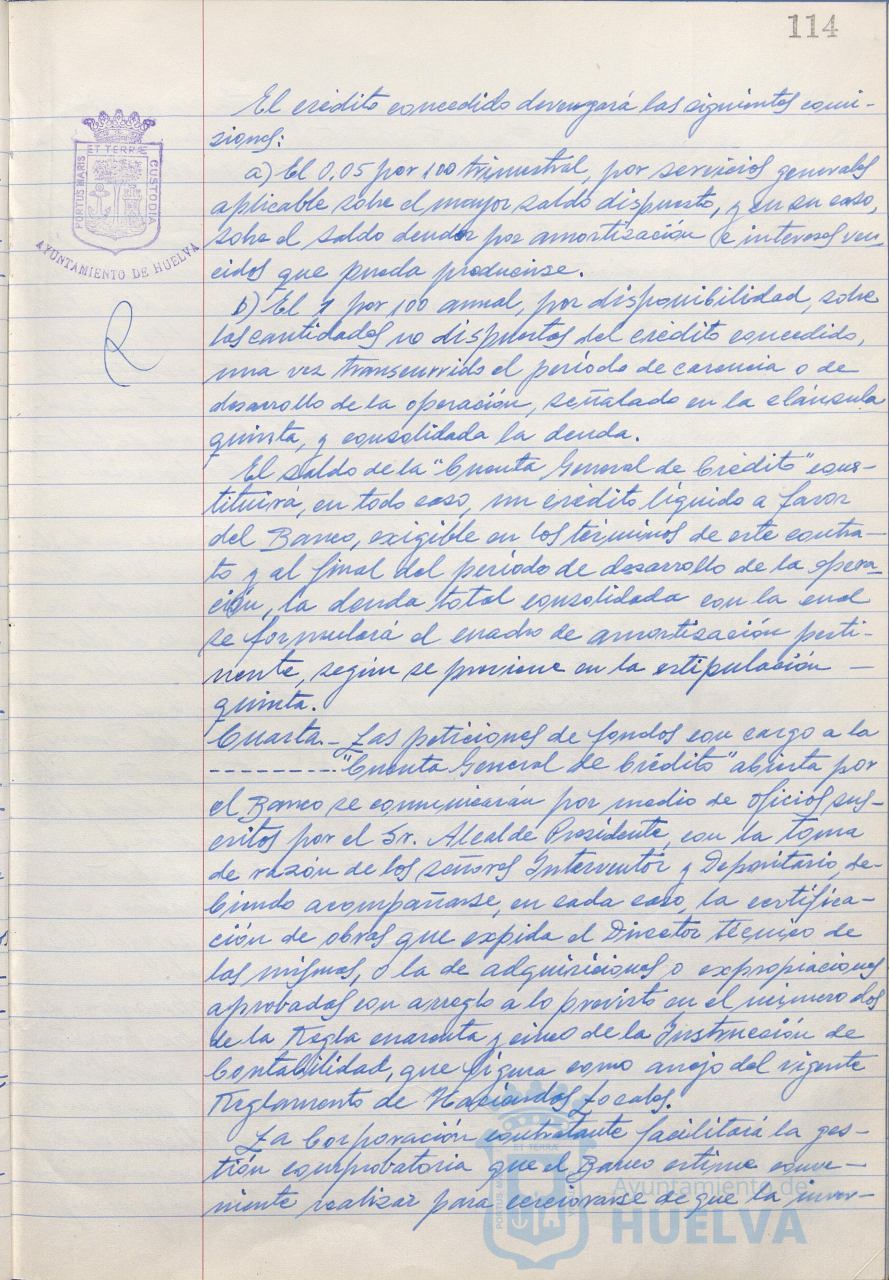 114
El crédito concedido devengará las siguientes comi-
siones:
a) El 0,05 por 100 trimestral, por servicios generales
aplicable sobre el mayor saldo dispuesto, y en su caso,
sobre el saldo deudor por amortización e intereses ven-
cidos que pueda producirse.
b) El 1 por 100 anual, por disponibilidad, sobre
las cantidades no dispuestas del crédito concedido,
una vez transcurrido el período de carencia o de
desarrollo de la operación, señalado en la cláusula
quinta, y consolidada la deuda.
El saldo de la "Cuenta General de Crédito" cons-
tituirá, en todo caso, un crédito líquido a favor
del Banco, exigible en los términos de este contra-
to y al final del período de desarrollo de la opera-
ción, la deuda total consolidada con la cual
se formulará el cuadro de amortización perti-
nente, según se previene en la estipulación —
quinta.
Cuarta.- Las peticiones de fondos con cargo a la
--------- "Cuenta General de Crédito" abierta por
el Banco se comunicarán por medio de oficios sus-
critos por el Sr. Alcalde Presidente, con la toma
de razón de los señores Interventor y Depositario, de-
biendo acompañarse, en cada caso, la certifica-
ción de obras que expida el Director técnico de
las mismas, o la de adquisiciones o expropiaciones
aprobadas con arreglo a lo previsto en el número dos
de la Regla cuarenta y cinco de la Instrucción de
Contabilidad, que figura como anejo del vigente
Reglamento de Haciendas Locales.
La Corporación contratante facilitará la ges-
tión comprobatoria que el Banco estime conve-
niente realizar para cerciorarse de que la inver-
PORTUS MARIS ET TERRÆ CUSTODIA
AYUNTAMIENTO DE HUELVA
Ayuntamiento de
HUELVA